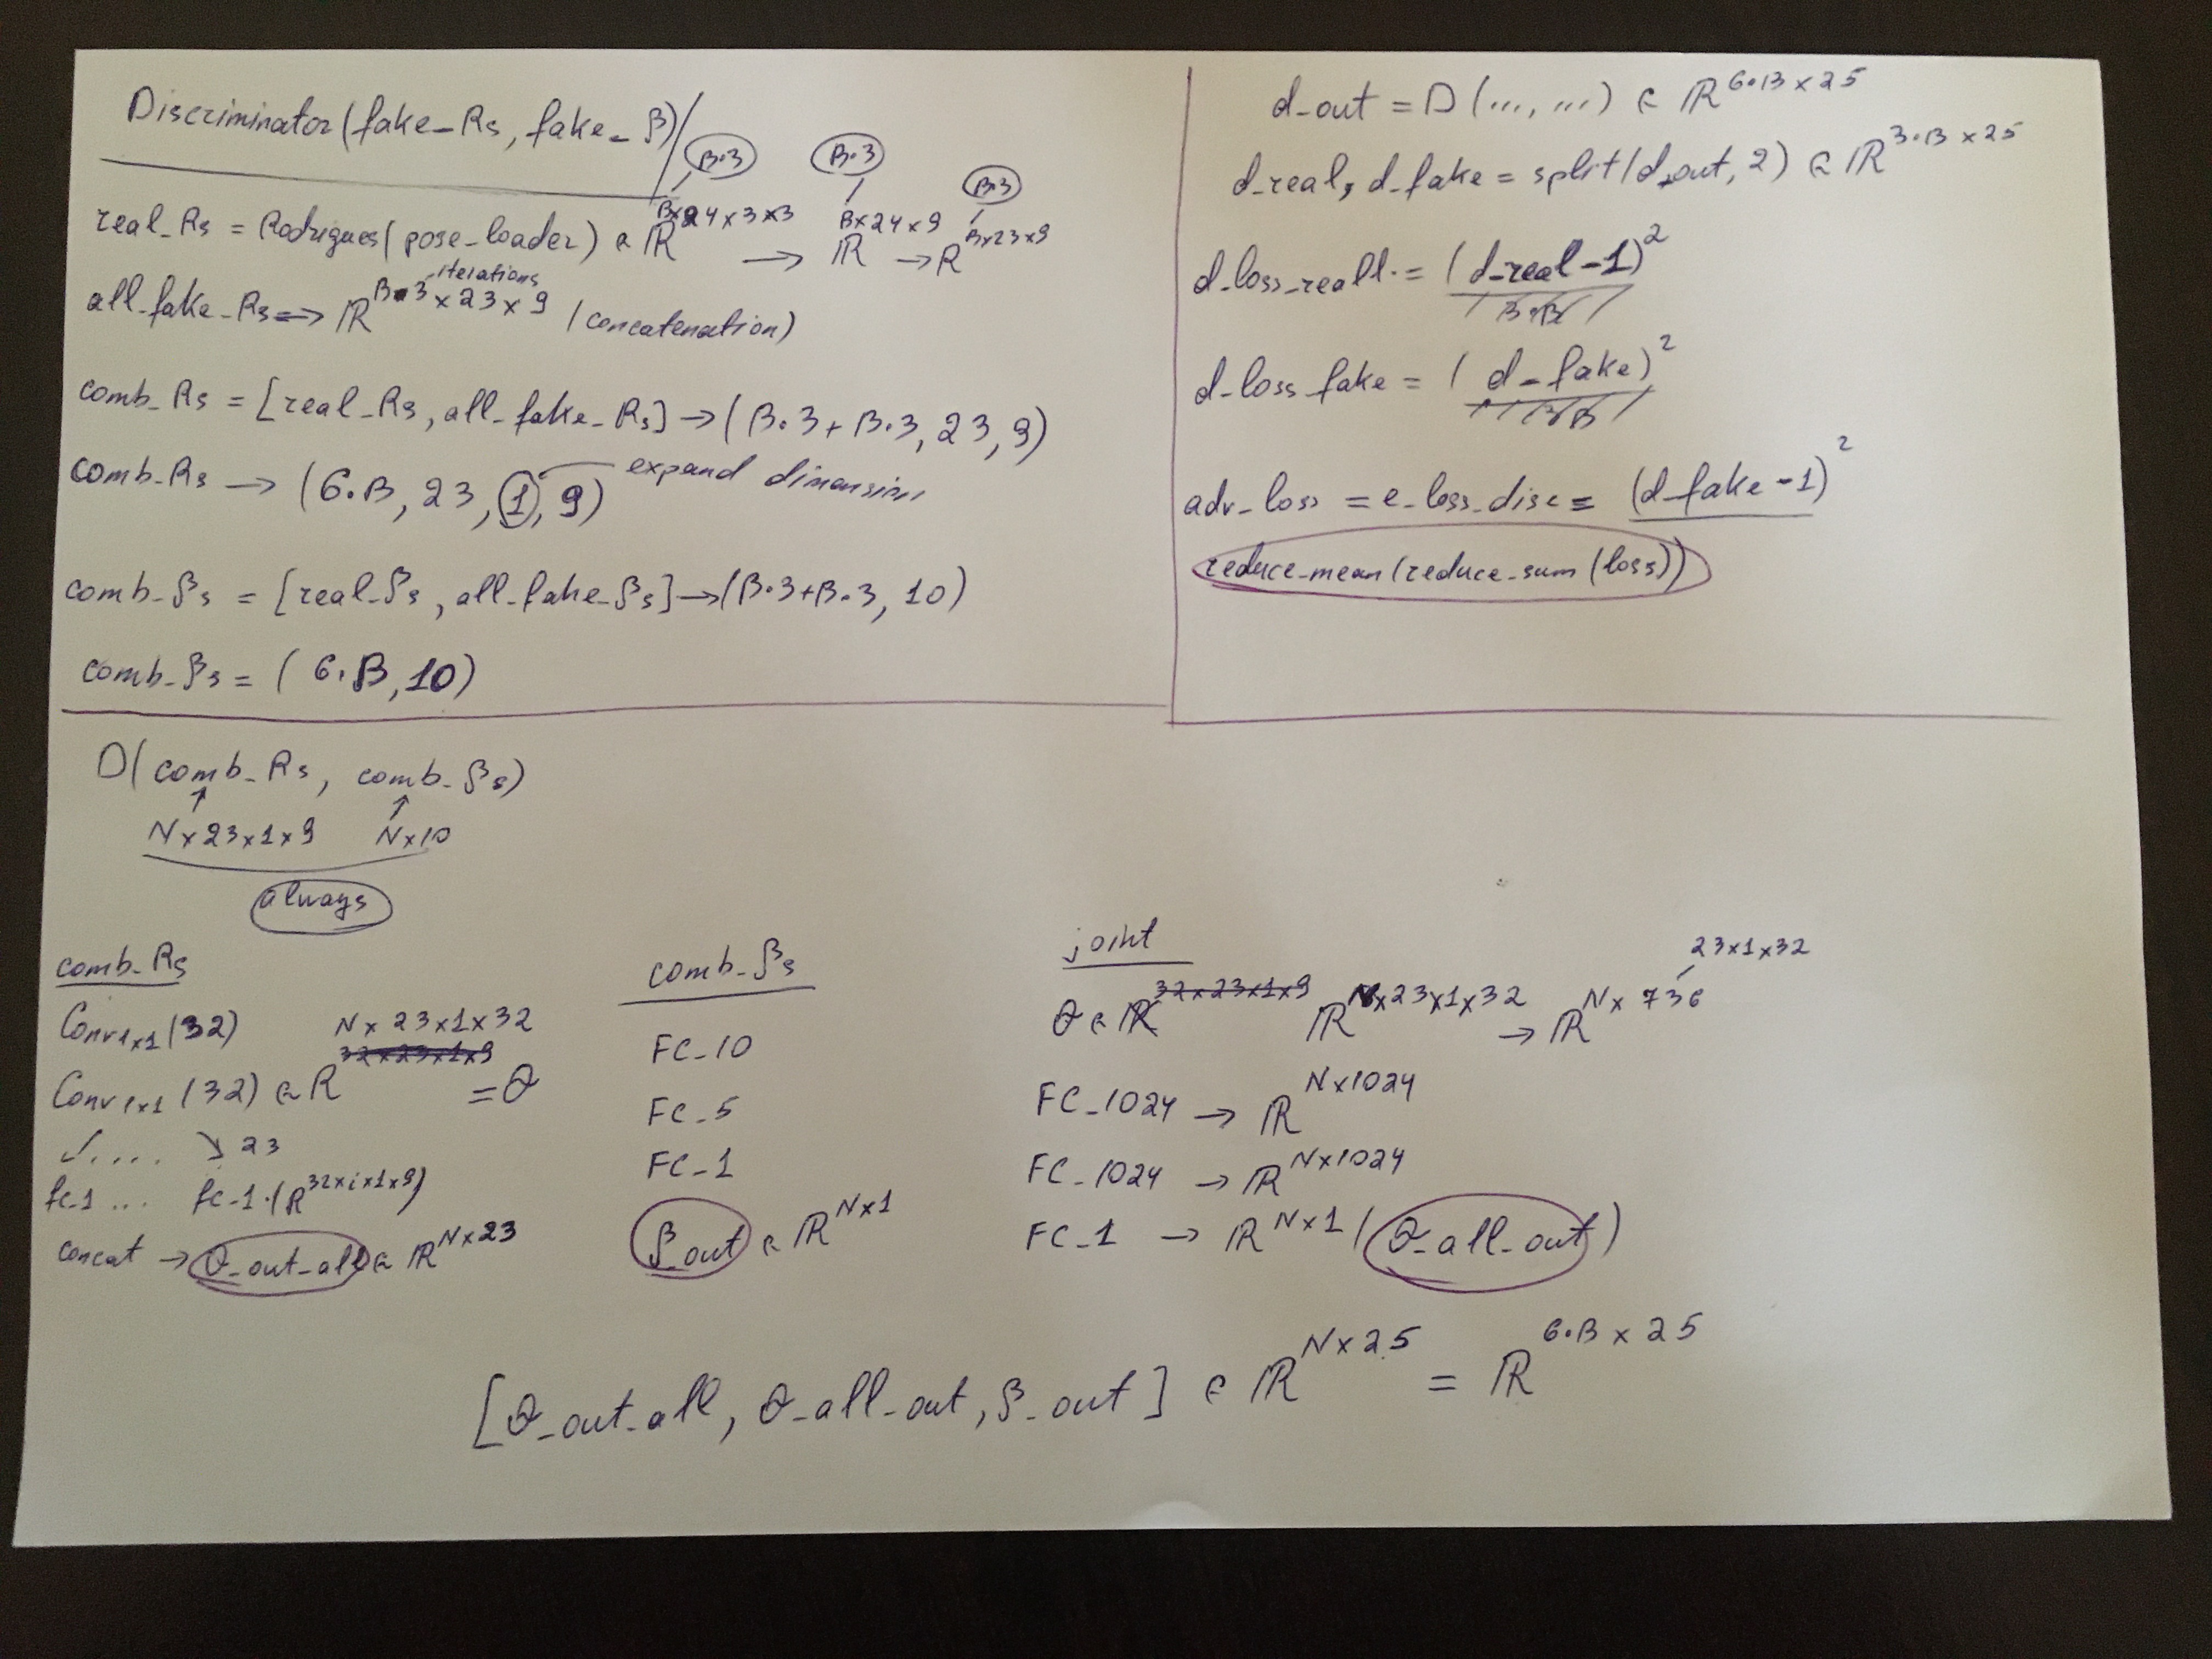 Discriminator(fake_Rs, fake_β)
B·3 B·3 B·3
real_Rs = Rodrigues(pose_loader) ∈ ℝ^B×24×3×3 → ℝ^B×24×9 → ℝ^B×23×9
all_fake_Rs => ℝ^B·3-iterations×23×9 (concatenation)
comb_Rs = [real_Rs, all_fake_Rs] → (B·3+B·3, 23, 9)
comb_Rs → (6·B, 23, 1, 9) expand dimensions
comb_βs = [real_βs, all_fake_βs] → (B·3+B·3, 10)
comb_βs = (6·B, 10)
d_out = D(..., ...) ∈ ℝ^6·B×25
d_real, d_fake = split(d_out, 2) ∈ ℝ^3·B×25
d_loss_real = (d_real-1)²
d_loss_fake = (d_fake)²
adv_loss = e_loss_disc = (d_fake-1)²
reduce_mean(reduce_sum(loss))
D(comb_Rs, comb_βs)
↑ ↑
N×23×1×9 N×10
always
comb_Rs
Conv1×1(32) N×23×1×32
32×23×1×9
Conv1×1(32) ∈ ℝ = θ
↙.... ↘ 23
fc_1 ... fc_1·(ℝ^32×i×1×9)
concat → θ_out_all ∈ ℝ^N×23
comb_βs
FC_10
FC_5
FC_1
β_out ∈ ℝ^N×1
joint
23×1×32
θ ∈ ℝ^32×23×1×9 ℝ^N×23×1×32 → ℝ^N×736
FC_1024 → ℝ^N×1024
FC_1024 → ℝ^N×1024
FC_1 → ℝ^N×1 (θ_all_out)
[θ_out_all, θ_all_out, β_out] ∈ ℝ^N×25 = ℝ^6·B×25